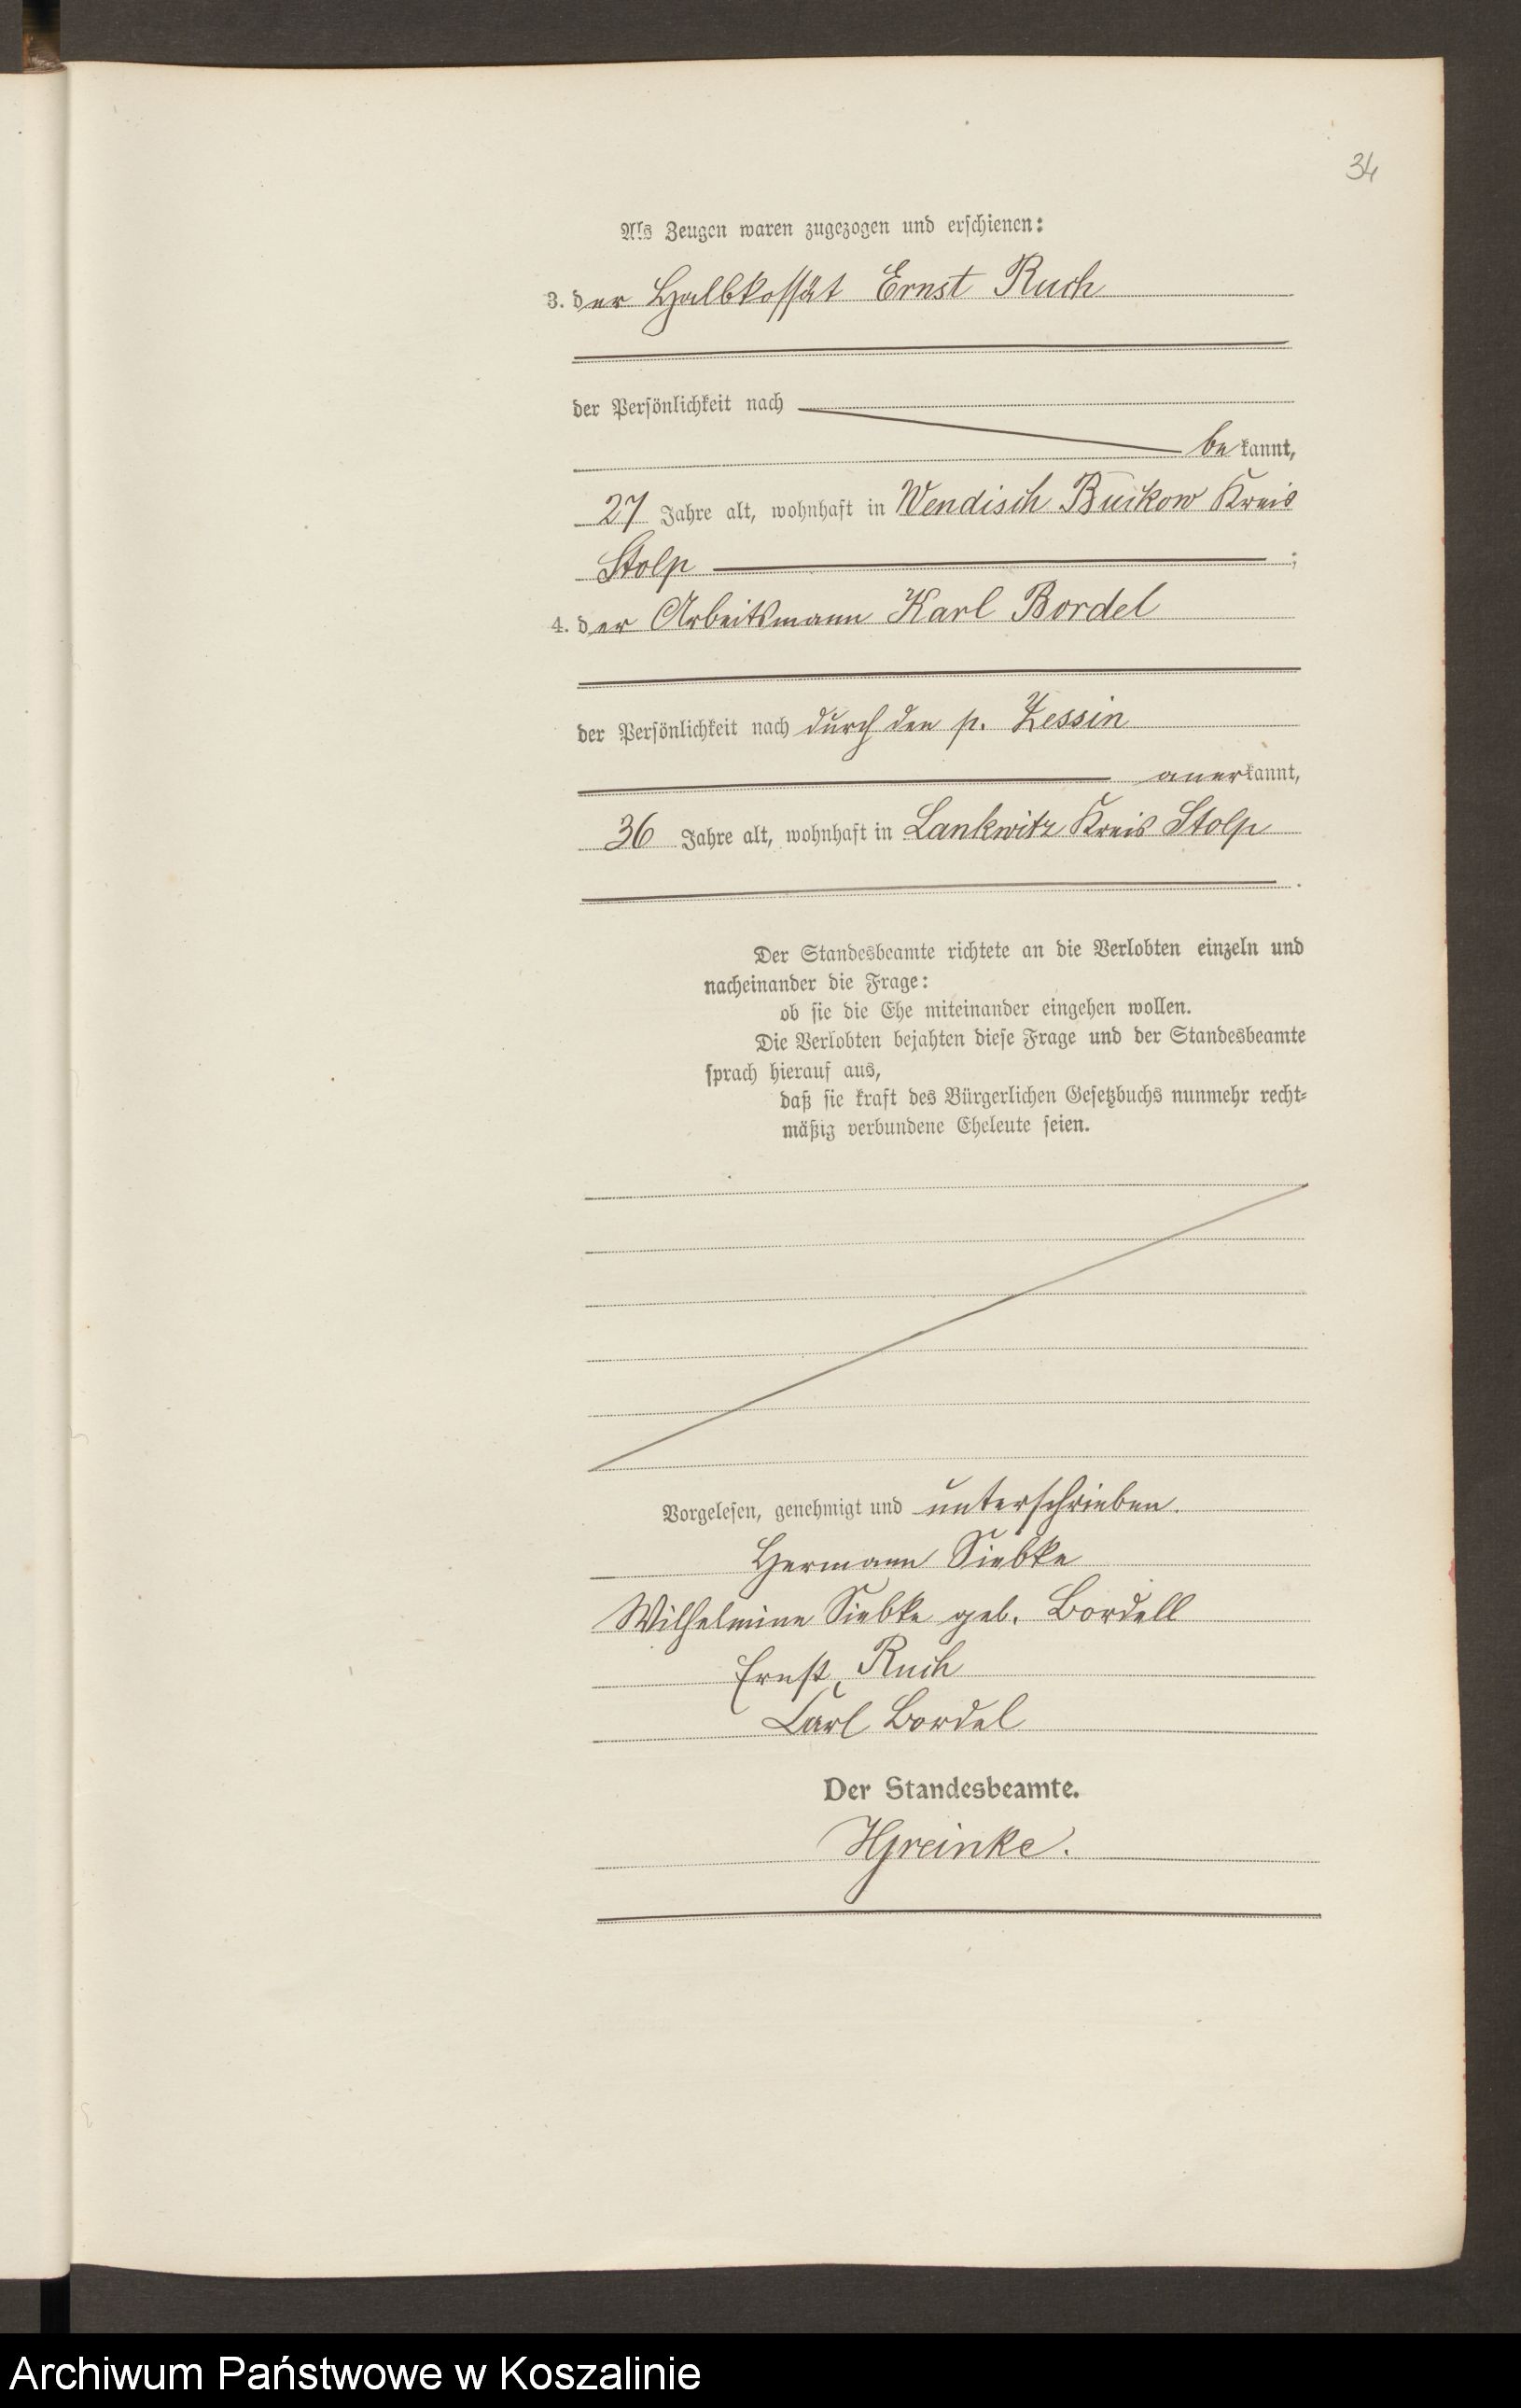 34
Als Zeugen waren zugezogen und erschienen:
3. der Halbkossät Ernst Ruch
der Persönlichkeit nach
bekannt,
27 Jahre alt, wohnhaft in Wendisch Buckow Kreis
Stolp ;
4. der Arbeitsmann Karl Bordel
der Persönlichkeit nach durch den p. Zessin
anerkannt,
36 Jahre alt, wohnhaft in Lankwitz Kreis Stolp
.
Der Standesbeamte richtete an die Verlobten einzeln und
nacheinander die Frage:
ob sie die Ehe miteinander eingehen wollen.
Die Verlobten bejahten diese Frage und der Standesbeamte
sprach hierauf aus,
daß sie kraft des Bürgerlichen Gesetzbuchs nunmehr recht-
mäßig verbundene Eheleute seien.
Vorgelesen, genehmigt und unterschrieben.
Hermann Siebke
Wilhelmine Siebke geb. Bordell
Ernst Ruch
Carl Bordel
Der Standesbeamte.
HGreinke.
Archiwum Państwowe w Koszalinie